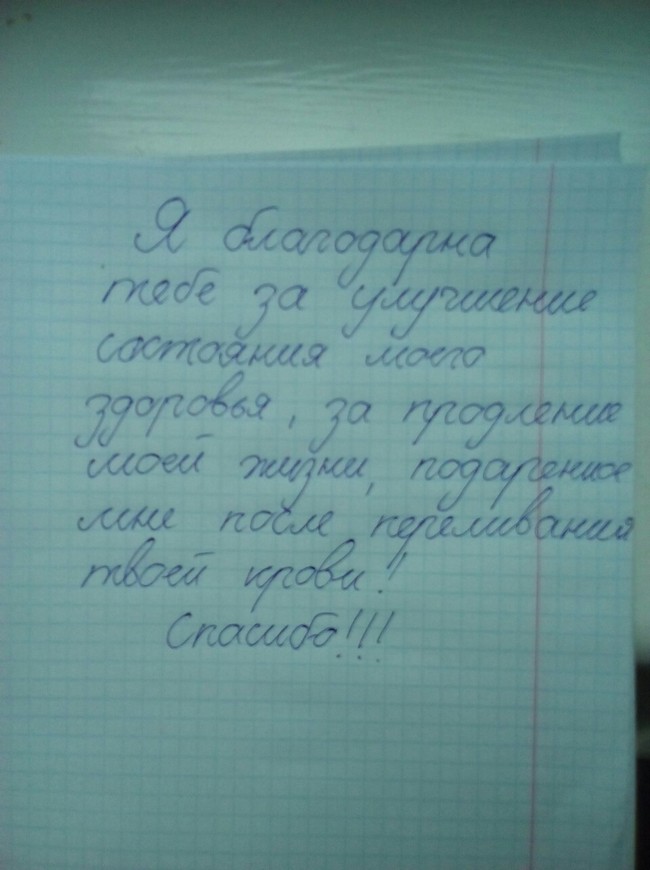 Я благодарна
тебе за улучшение
состояния моего
здоровья, за продление
моей жизни, подаренное
мне после переливания
твоей крови!
Спасибо!!!